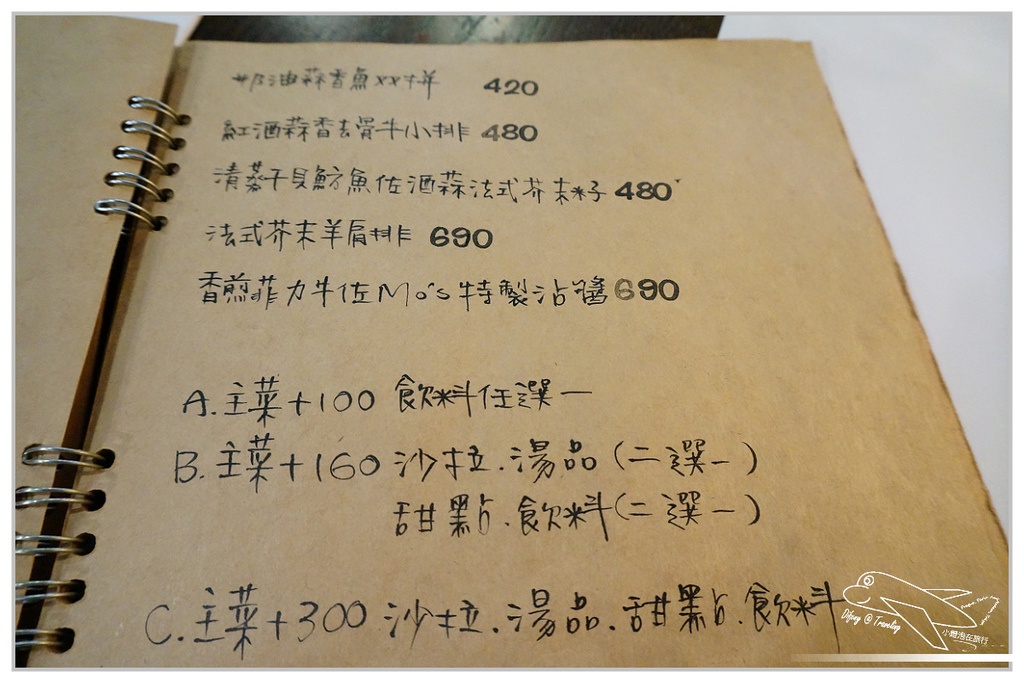 奶油蒜香魚XX拼 420
紅酒蒜香去骨牛小排 480
清蒸干貝鮟魚佐酒蒜法式芥末籽 480
法式芥末羊肩排 690
香煎菲力牛佐Mo's特製沾醬 690
A.主菜+100 飲料任選一
B.主菜+160 沙拉.湯品(二選一)
甜點.飲料(二選一)
C.主菜+300 沙拉.湯品.甜點.飲料
@ Traveling
小跑泡在旅行